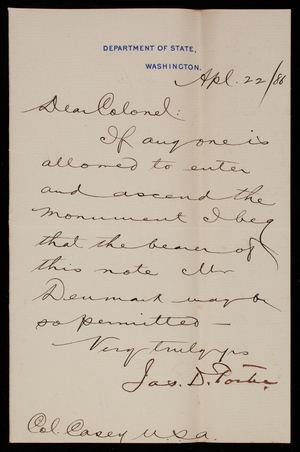 DEPARTMENT OF STATE,
WASHINGTON.
Apl. 22/86
Dear Colonel:
If any one is
allowed to enter
and ascend the
monument I beg
that the bearer of
this note Mr
Denmark may be
so permitted—
Very truly yrs
Jas. D. Porter.
Col. Casey U.S.A.